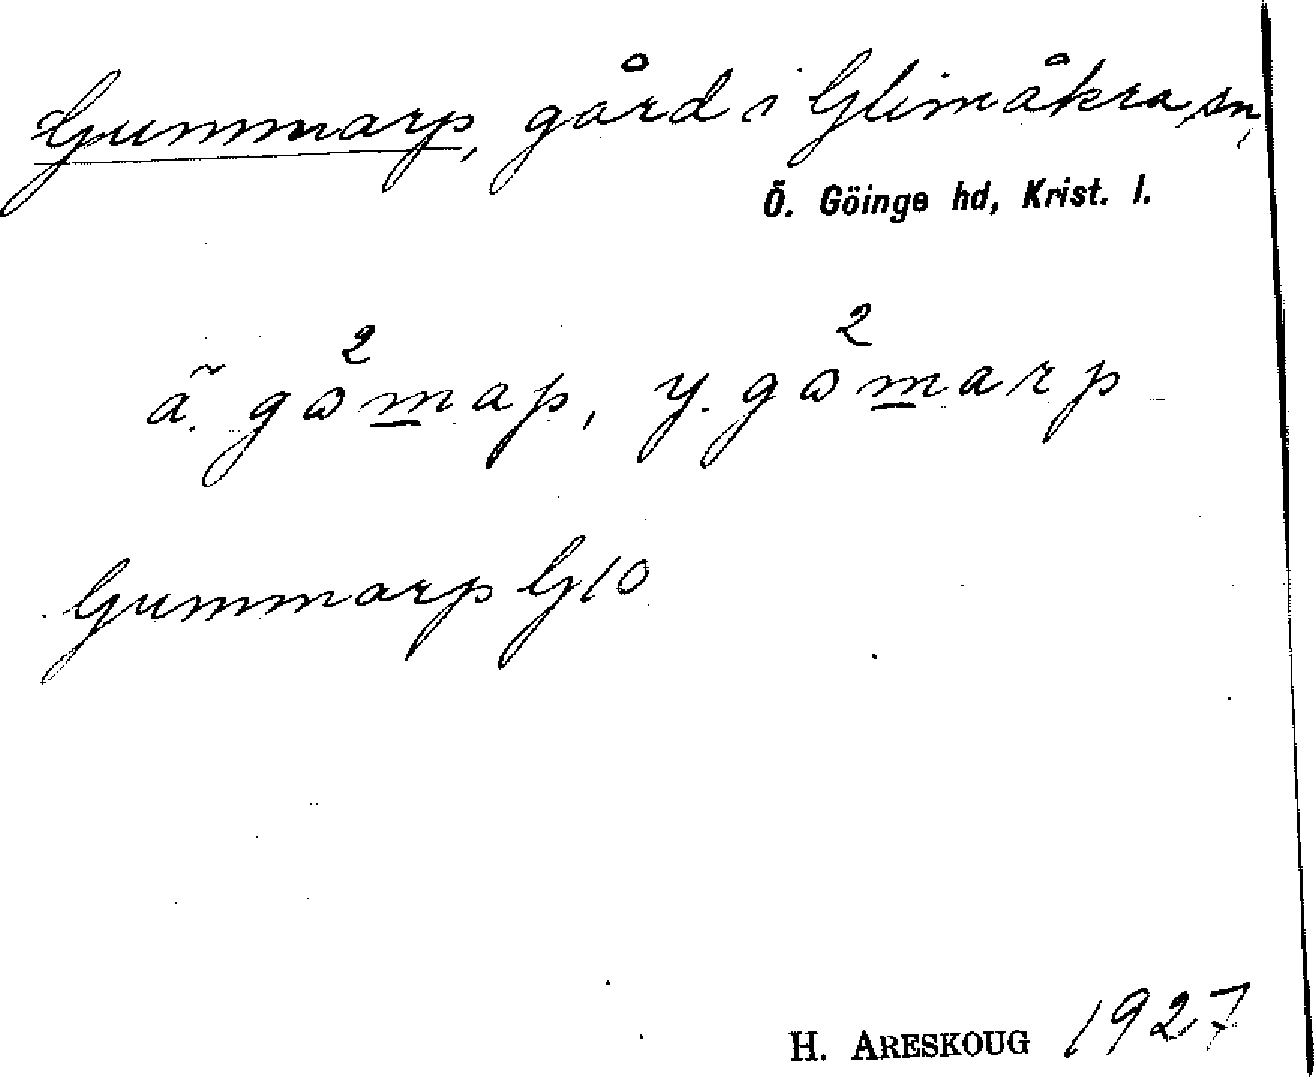 Gummarp, gård i Glimåkra sn,
Ö. Göinge hd, Krist. l.
ä. gω²m̲ap, y. gω²m̲arp
Gummarp G10
H. ARESKOUG 1927